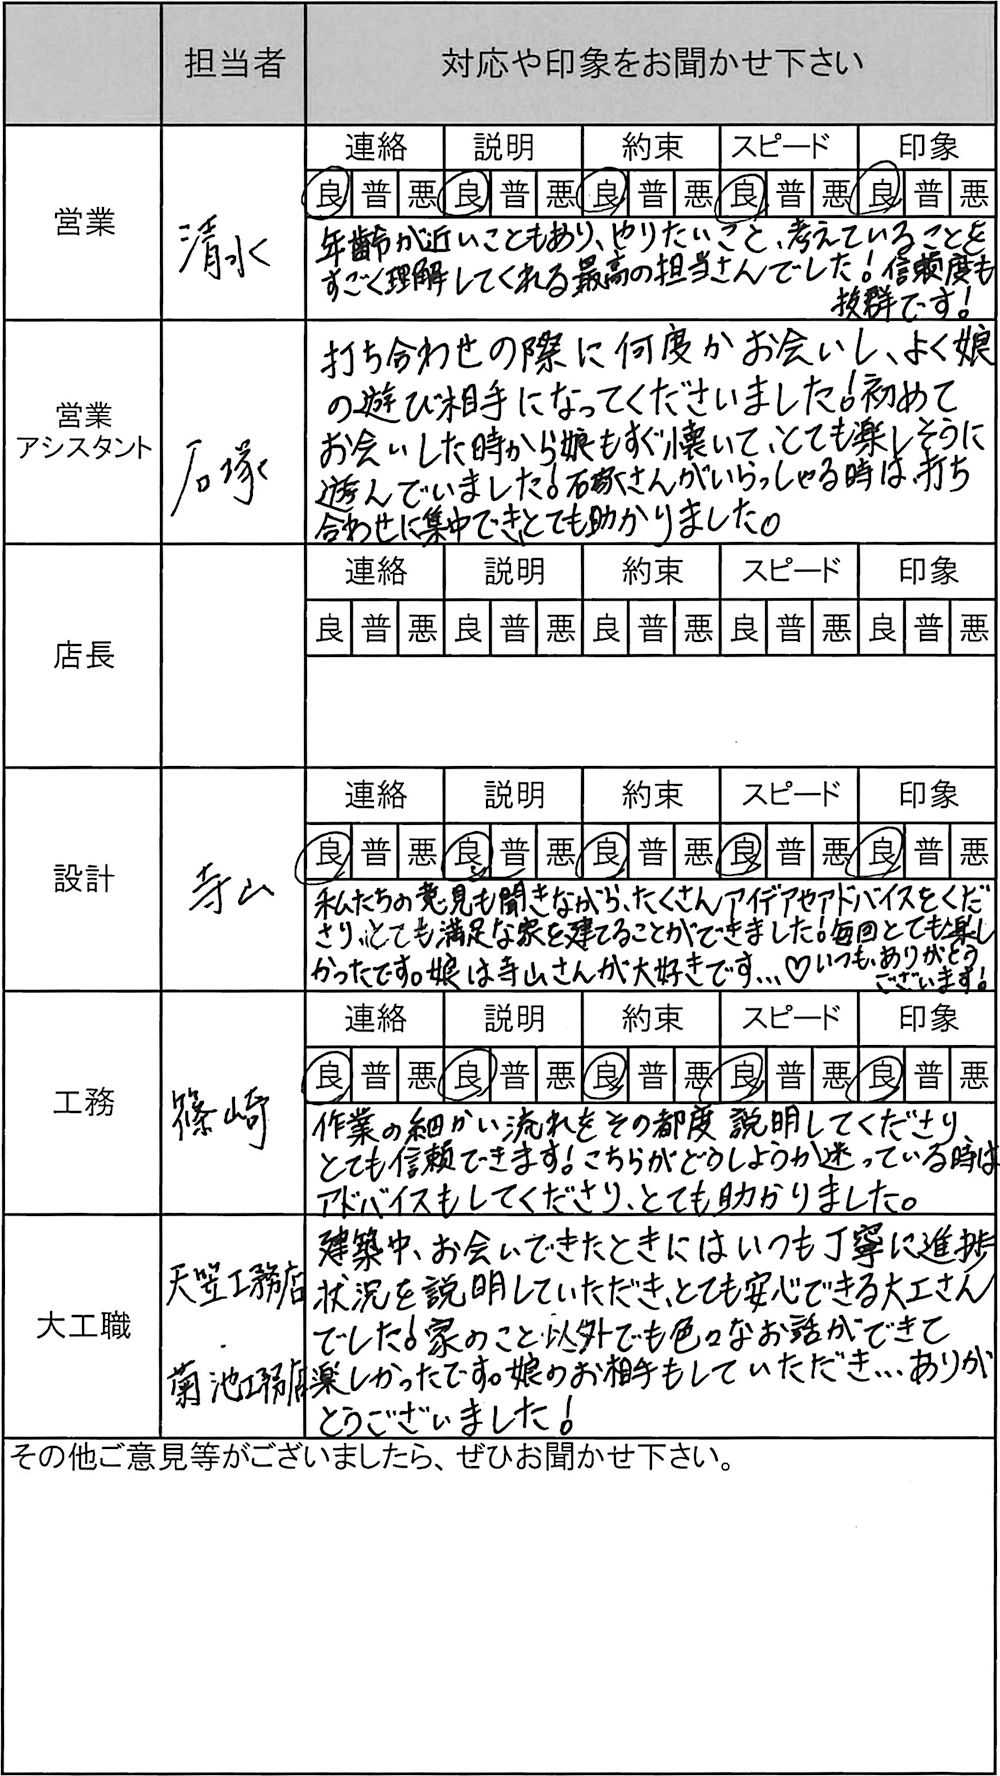 担当者 対応や印象をお聞かせ下さい
連絡 説明 約束 スピード 印象
良 普 悪 良 普 悪 良 普 悪 良 普 悪 良 普 悪
営業
清水
年齢が近いこともあり、やりたいこと、考えていることを
すごく理解してくれる最高の担当さんでした!信頼度も
抜群です!
営業
アシスタント
石塚
打ち合わせの際に何度かお会いし、よく娘
の遊び相手になってくださいました!初めて
お会いした時から娘もすぐ懐いて、とても楽しそうに
遊んでいました!石塚さんがいらっしゃる時は、打ち
合わせに集中でき、とても助かりました。
連絡 説明 約束 スピード 印象
良 普 悪 良 普 悪 良 普 悪 良 普 悪 良 普 悪
店長
連絡 説明 約束 スピード 印象
良 普 悪 良 普 悪 良 普 悪 良 普 悪 良 普 悪
設計
寺山
私たちの意見も聞きながら、たくさんアイデアやアドバイスをくだ
さり、とても満足な家を建てることができました!毎回とても楽し
かったです。娘は寺山さんが大好きです…♡いつも、ありがとう
ございます!
連絡 説明 約束 スピード 印象
良 普 悪 良 普 悪 良 普 悪 良 普 悪 良 普 悪
工務
篠崎
作業の細かい流れをその都度説明してくださり
とても信頼できます!こちらがどうしようか迷っている時は
アドバイスもしてくださり、とても助かりました。
大工職
天笠工務店
・
菊池工務店
建築中、お会いできたときにはいつも丁寧に進捗
状況を説明していただき、とても安心できる大工さん
でした!家のこと以外でも色々なお話ができて
楽しかったです。娘のお相手もしていただき…ありが
とうございました!
その他ご意見等がございましたら、ぜひお聞かせ下さい。